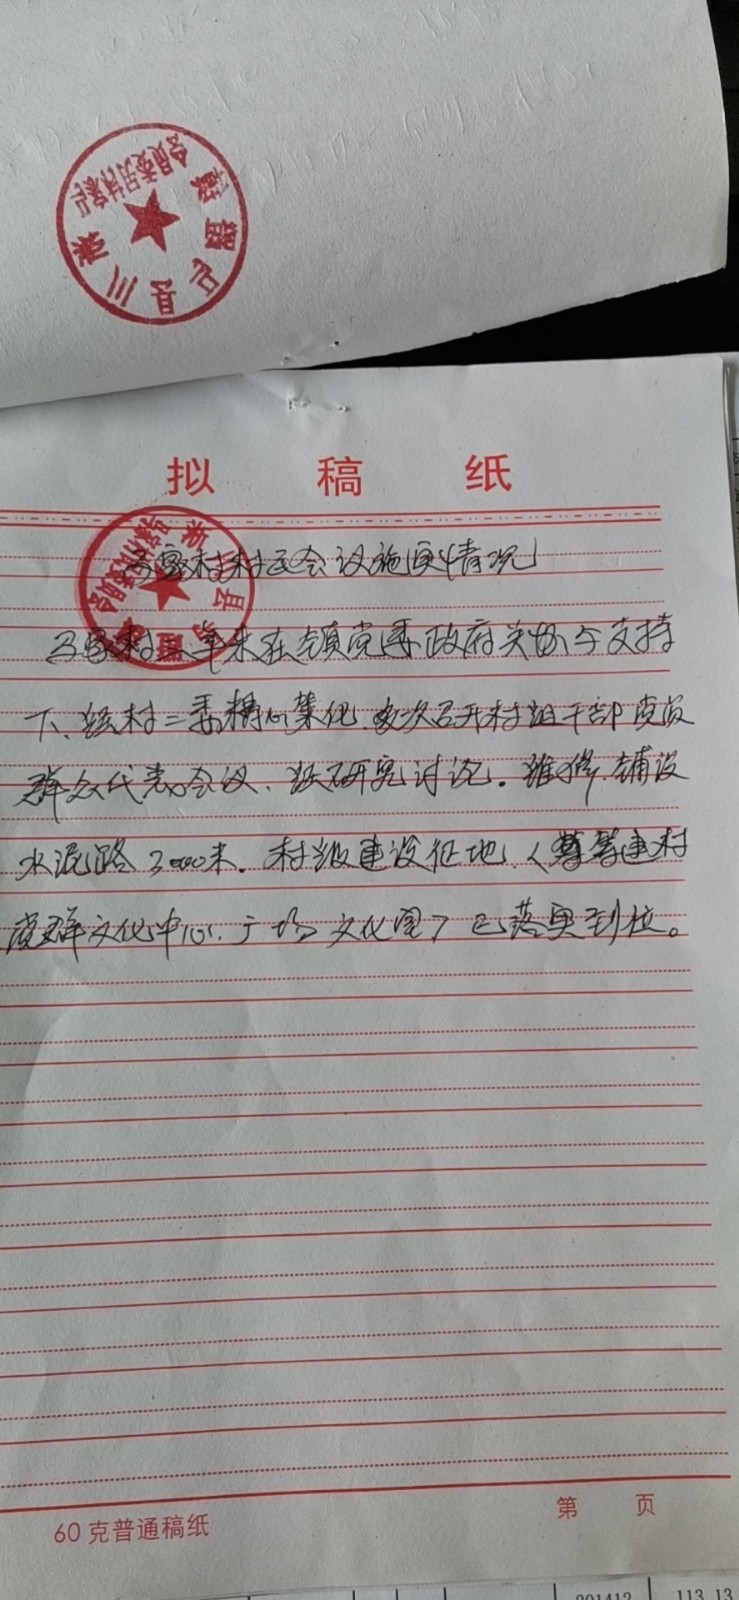 淅川县
拟 稿 纸
村村民会议施实情况
年来在镇党委政府关怀与支持
下、经村三委精心策化、多次召开村组干部党员
群众代表会议、经研究讨论。维修、铺设
水泥路3000米。村级建设征地、(建村
党群文化中心、广场 文化图)已落实到位。
60克普通稿纸
第 页
201412 113.13